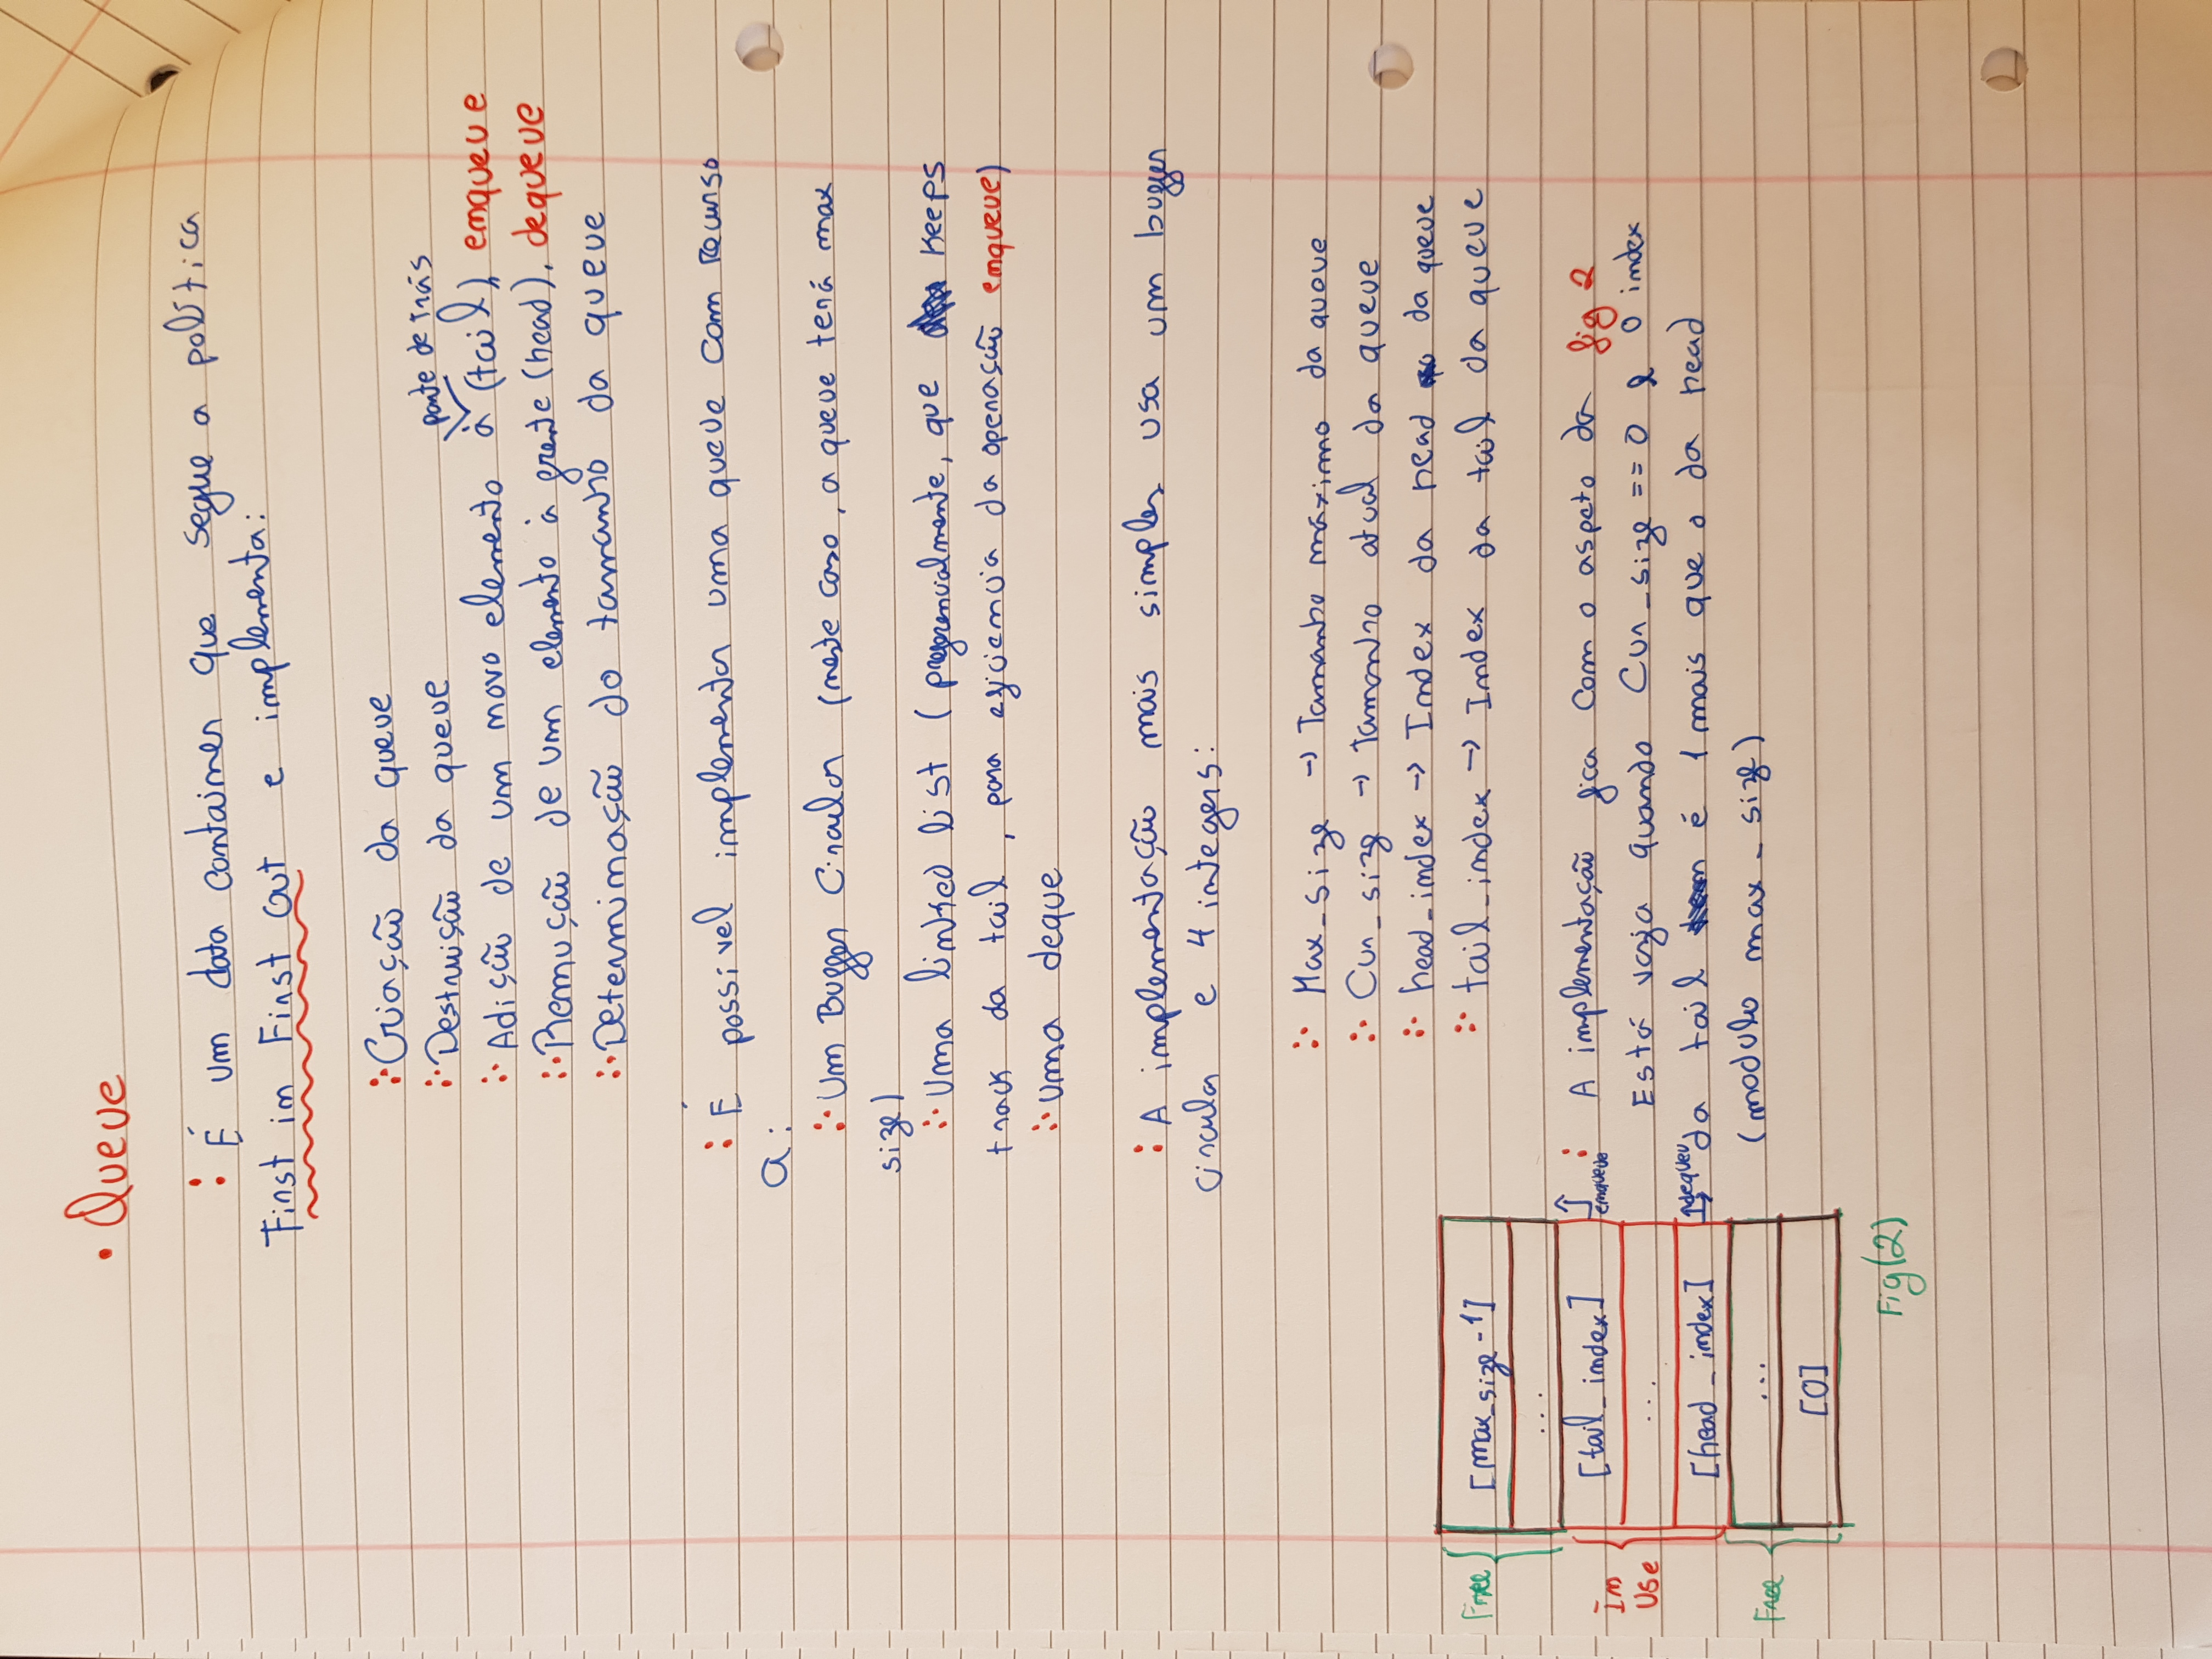 • Queue
: É um data container que segue a política
First in First Out e implementa:
∴ Criação da queue
∴ Destruição da queue
parte de trás
∴ Adição de um novo elemento à (tail), enqueue
∴ Remoção de um elemento à frente (head), dequeue
∴ Determinação do tamanho da queue
: É possível implementar uma queue com recurso
a:
∴ Um Buffer Circular (neste caso, a queue terá max
size)
∴ Uma linked list (preferencialmente, que keeps
track da tail, para eficiencia da operasção enqueue)
∴ uma deque
: A implementação mais simples usa um buffer
circular e 4 integers:
∴ Max_size → Tamanho máximo da queue
∴ Cur_size → Tamanho atual da queue
∴ head_index → Index da head da queue
∴ tail_index → Index da tail da queue
Free
[max_size -1]
...
In
Use
[tail_index]
enqueue
...
[head_index]
dequeu
Free
...
[0]
Fig(2)
: A implementação fica com o aspeto da fig 2
Está vazia quando Cur_size == 0 e o index
da tail é 1 mais que o da head
(modulo max_size)